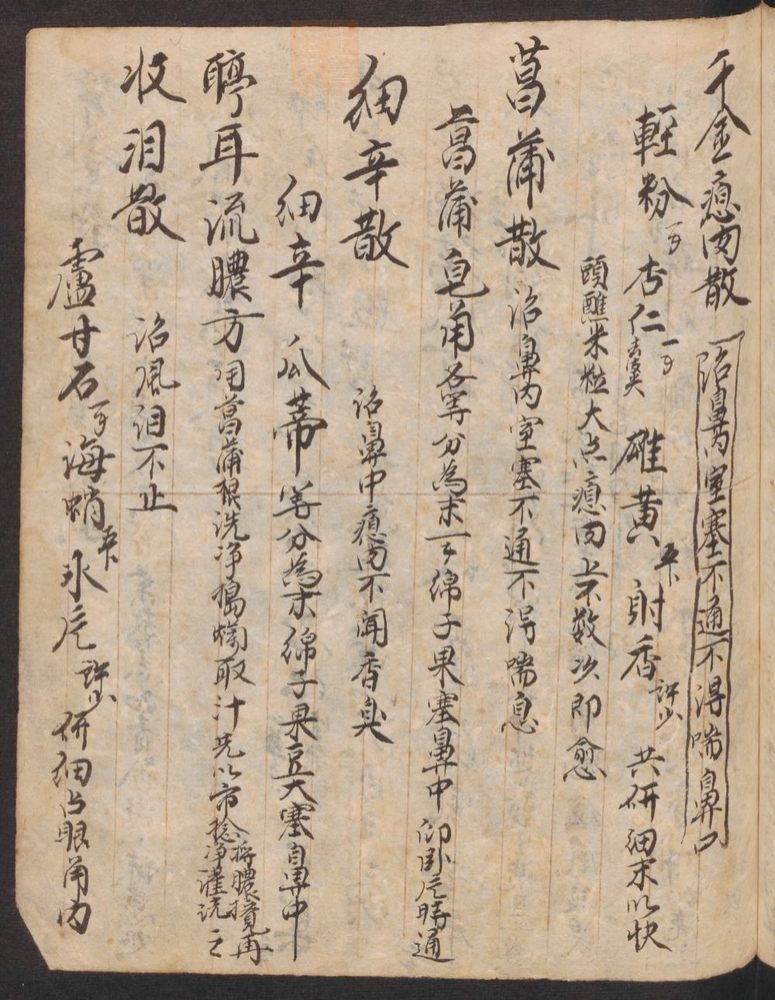 千金瘜肉散 治鼻內窒塞不通不得喘鼻口
輕粉一𠆤 杏仁一𠆤去皮尖 雄黃五卜 射香許少 共併細末以快
頭醮米粒大点瘜肉上不数次即愈
菖蒲散 治鼻內窒塞不通不得喘息
菖蒲 皂角各等分為末一𠆤綿子果塞鼻中仰卧片時通
細辛散 治鼻中瘜肉不闻香臭
細辛 瓜蒂 等分為末綿子果豆大塞鼻中
聤耳流膿方 用菖蒲根洗净搗爛取汁先以市捻净灌洗之
收泪散 治風泪不止
盧甘石一𠆤 海蛸五卜 氷片許少 併细占眼角内